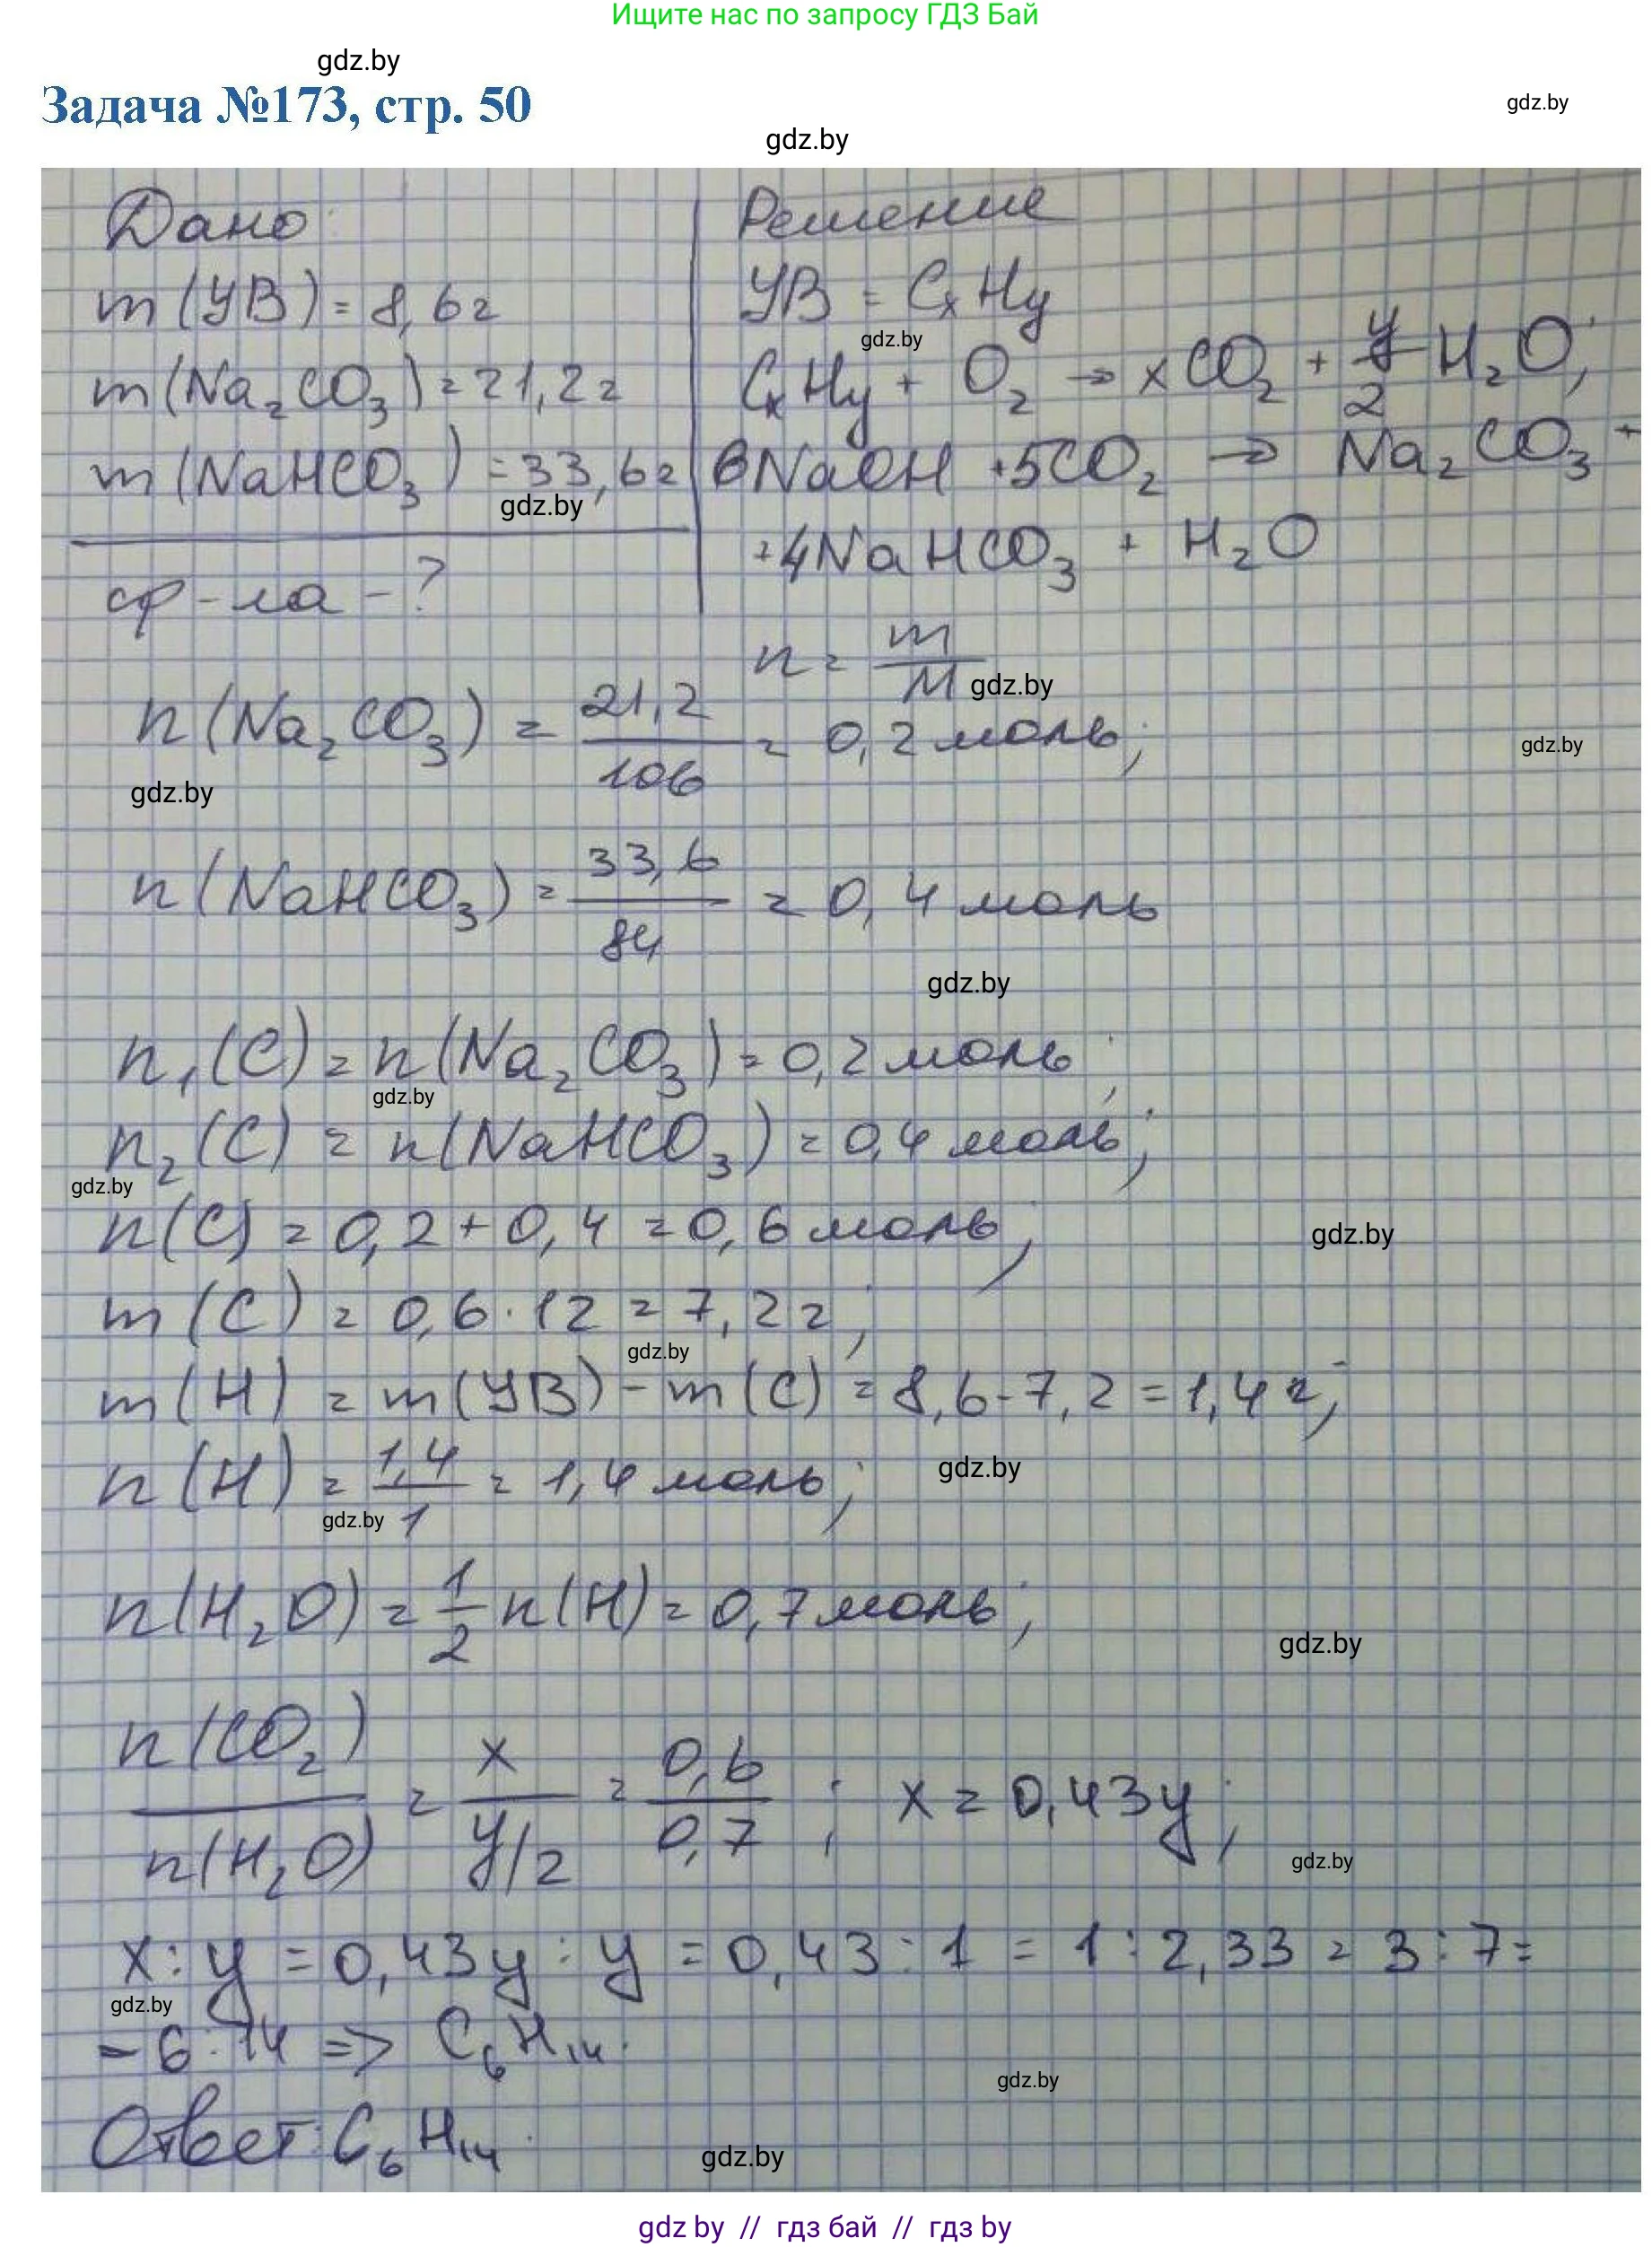 Ищите нас по запросу ГДЗ Бай
gdz.by
Задача №173, стр. 50
gdz.by
gdz.by
Дано:
m(УВ) = 8,6г
m(Na₂CO₃) = 21,2г
m(NaHCO₃) = 33,6г
gdz.by
ф-ла - ?
Решение
УВ = CₓHy
gdz.by
CₓHy + O₂ → xCO₂ + y/2 H₂O;
6NaOH + 5CO₂ → Na₂CO₃ +
+ 4NaHCO₃ + H₂O
n = m/M
gdz.by
n(Na₂CO₃) = 21,2/106 = 0,2 моль;
gdz.by
gdz.by
n(NaHCO₃) = 33,6/84 = 0,4 моль
gdz.by
n₁(C) = n(Na₂CO₃) = 0,2 моль;
gdz.by
n₂(C) = n(NaHCO₃) = 0,4 моль;
gdz.by
n(C) = 0,2 + 0,4 = 0,6 моль;
gdz.by
m(C) = 0,6 · 12 = 7,2г;
gdz.by
m(H) = m(УВ) - m(C) = 8,6 - 7,2 = 1,4г;
n(H) = 1,4/1 = 1,4 моль;
gdz.by
gdz.by
n(H₂O) = 1/2 n(H) = 0,7 моль;
gdz.by
n(CO₂)/n(H₂O) = x/y/2 = 0,6/0,7; x = 0,43y;
gdz.by
x : y = 0,43y : y = 0,43 : 1 = 1 : 2,33 = 3 : 7 =
gdz.by
= 6 : 14 => C₆H₁₄.
gdz.by
Ответ: C₆H₁₄.
gdz.by
gdz by // гдз бай // гдз by